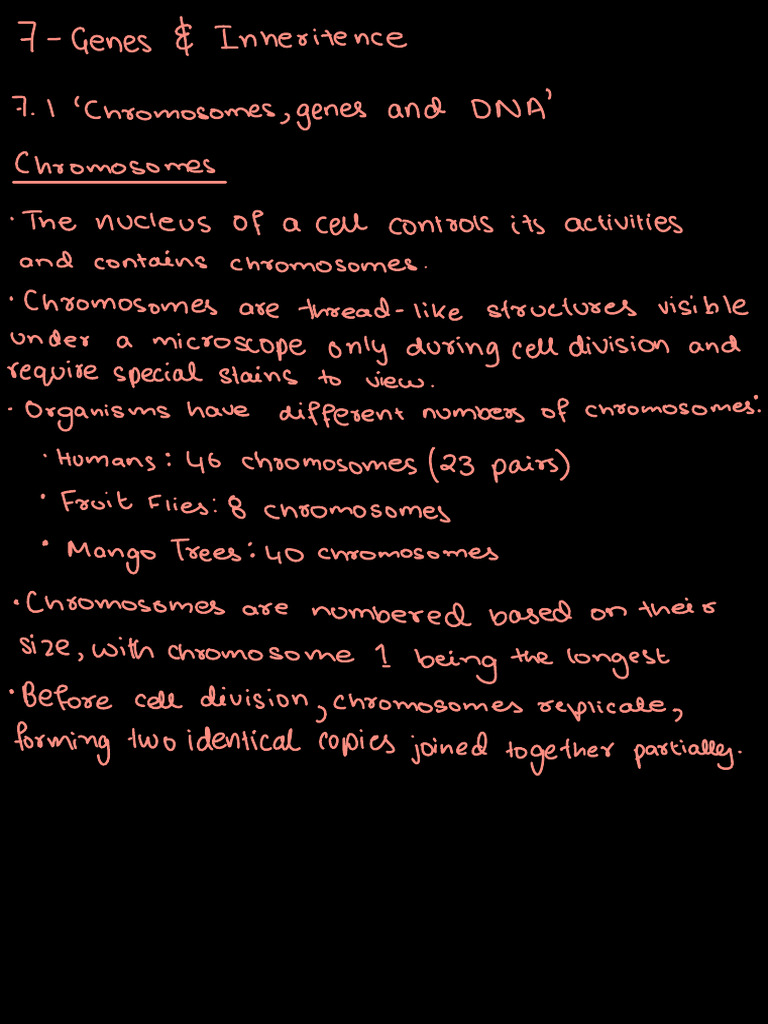 7 - Genes & Inheritence
7.1 'Chromosomes, genes and DNA'
Chromosomes
· The nucleus of a cell controls its activities
and contains chromosomes.
· Chromosomes are thread-like structures visible
under a microscope only during cell division and
require special stains to view.
· Organisms have different numbers of chromosomes:
· Humans: 46 chromosomes (23 pairs)
· Fruit Flies: 8 chromosomes
· Mango Trees: 40 chromosomes
· Chromosomes are numbered based on their
size, with chromosome 1 being the longest
· Before cell division, chromosomes replicate,
forming two identical copies joined together partially.